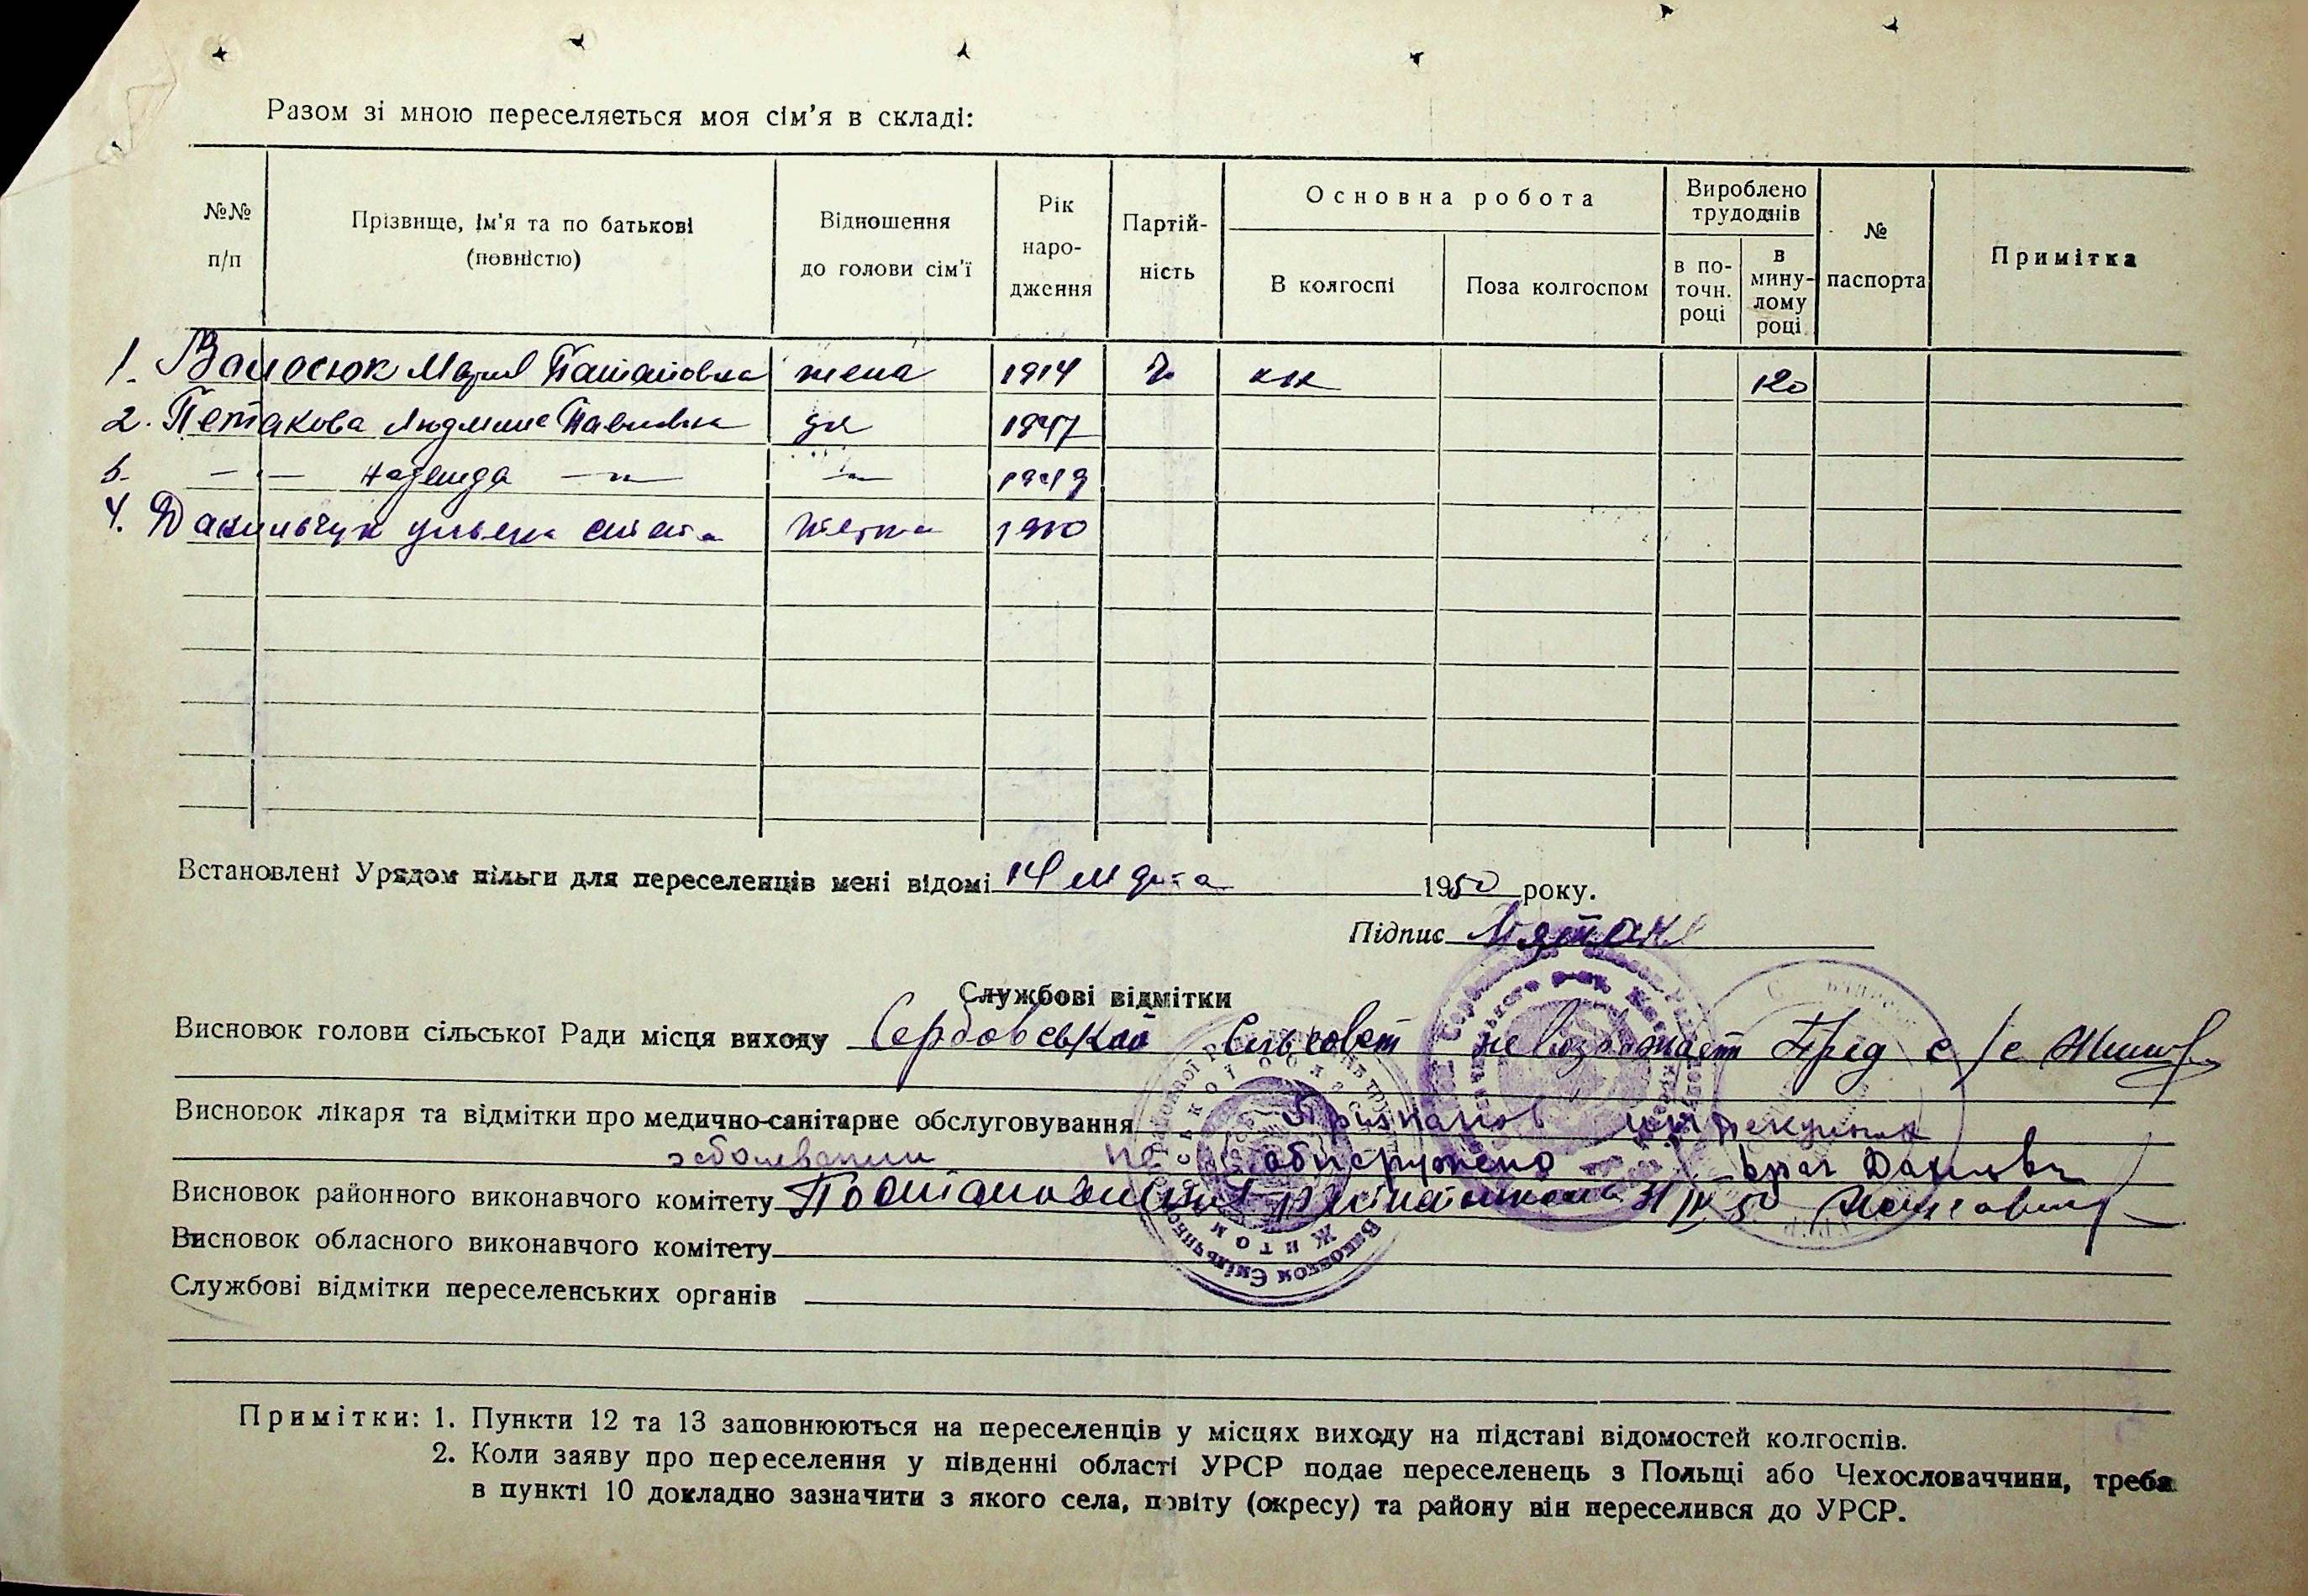 Разом зі мною переселяється моя сім'я в складі:
№№ п/п
Прізвище, ім'я та по батькові (повністю)
Відношення до голови сім'ї
Рік наро- дження
Партій- ність
Основна робота
В колгоспі
Поза колгоспом
Вироблено трудоднів
в по- точн. році
в мину- лому році
№ паспорта
Примітка
1. Мария жена 1914 120
2. Петакова Людмила Павловна 1947
3. Надежда 1949
4. Данильчук
Встановлені Урядом пільги для переселенців мені відомі 14 марта 1950 року.
Підпис
Службові відмітки
Висновок голови сільської Ради місця виходу Сербовський Сельсовет не возражает Пред с/с
Висновок лікаря та відмітки про медично-санітарне обслуговування Признаков инфекцион
заболевании не обнаружено врач
Висновок районного виконавчого комітету
Висновок обласного виконавчого комітету
Службові відмітки переселенських органів
Примітки: 1. Пункти 12 та 13 заповнюються на переселенців у місцях виходу на підставі відомостей колгоспів.
2. Коли заяву про переселення у південні області УРСР подає переселенець з Польщі або Чехословаччини, треба
в пункті 10 докладно зазначити з якого села, повіту (окресу) та району він переселився до УРСР.